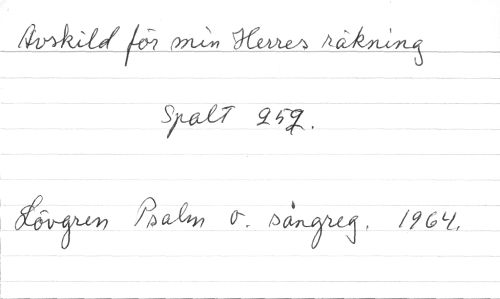 Avskild för min Herres räkning
Spalt 252.
Lövgren Psalm o. sångreg. 1964.